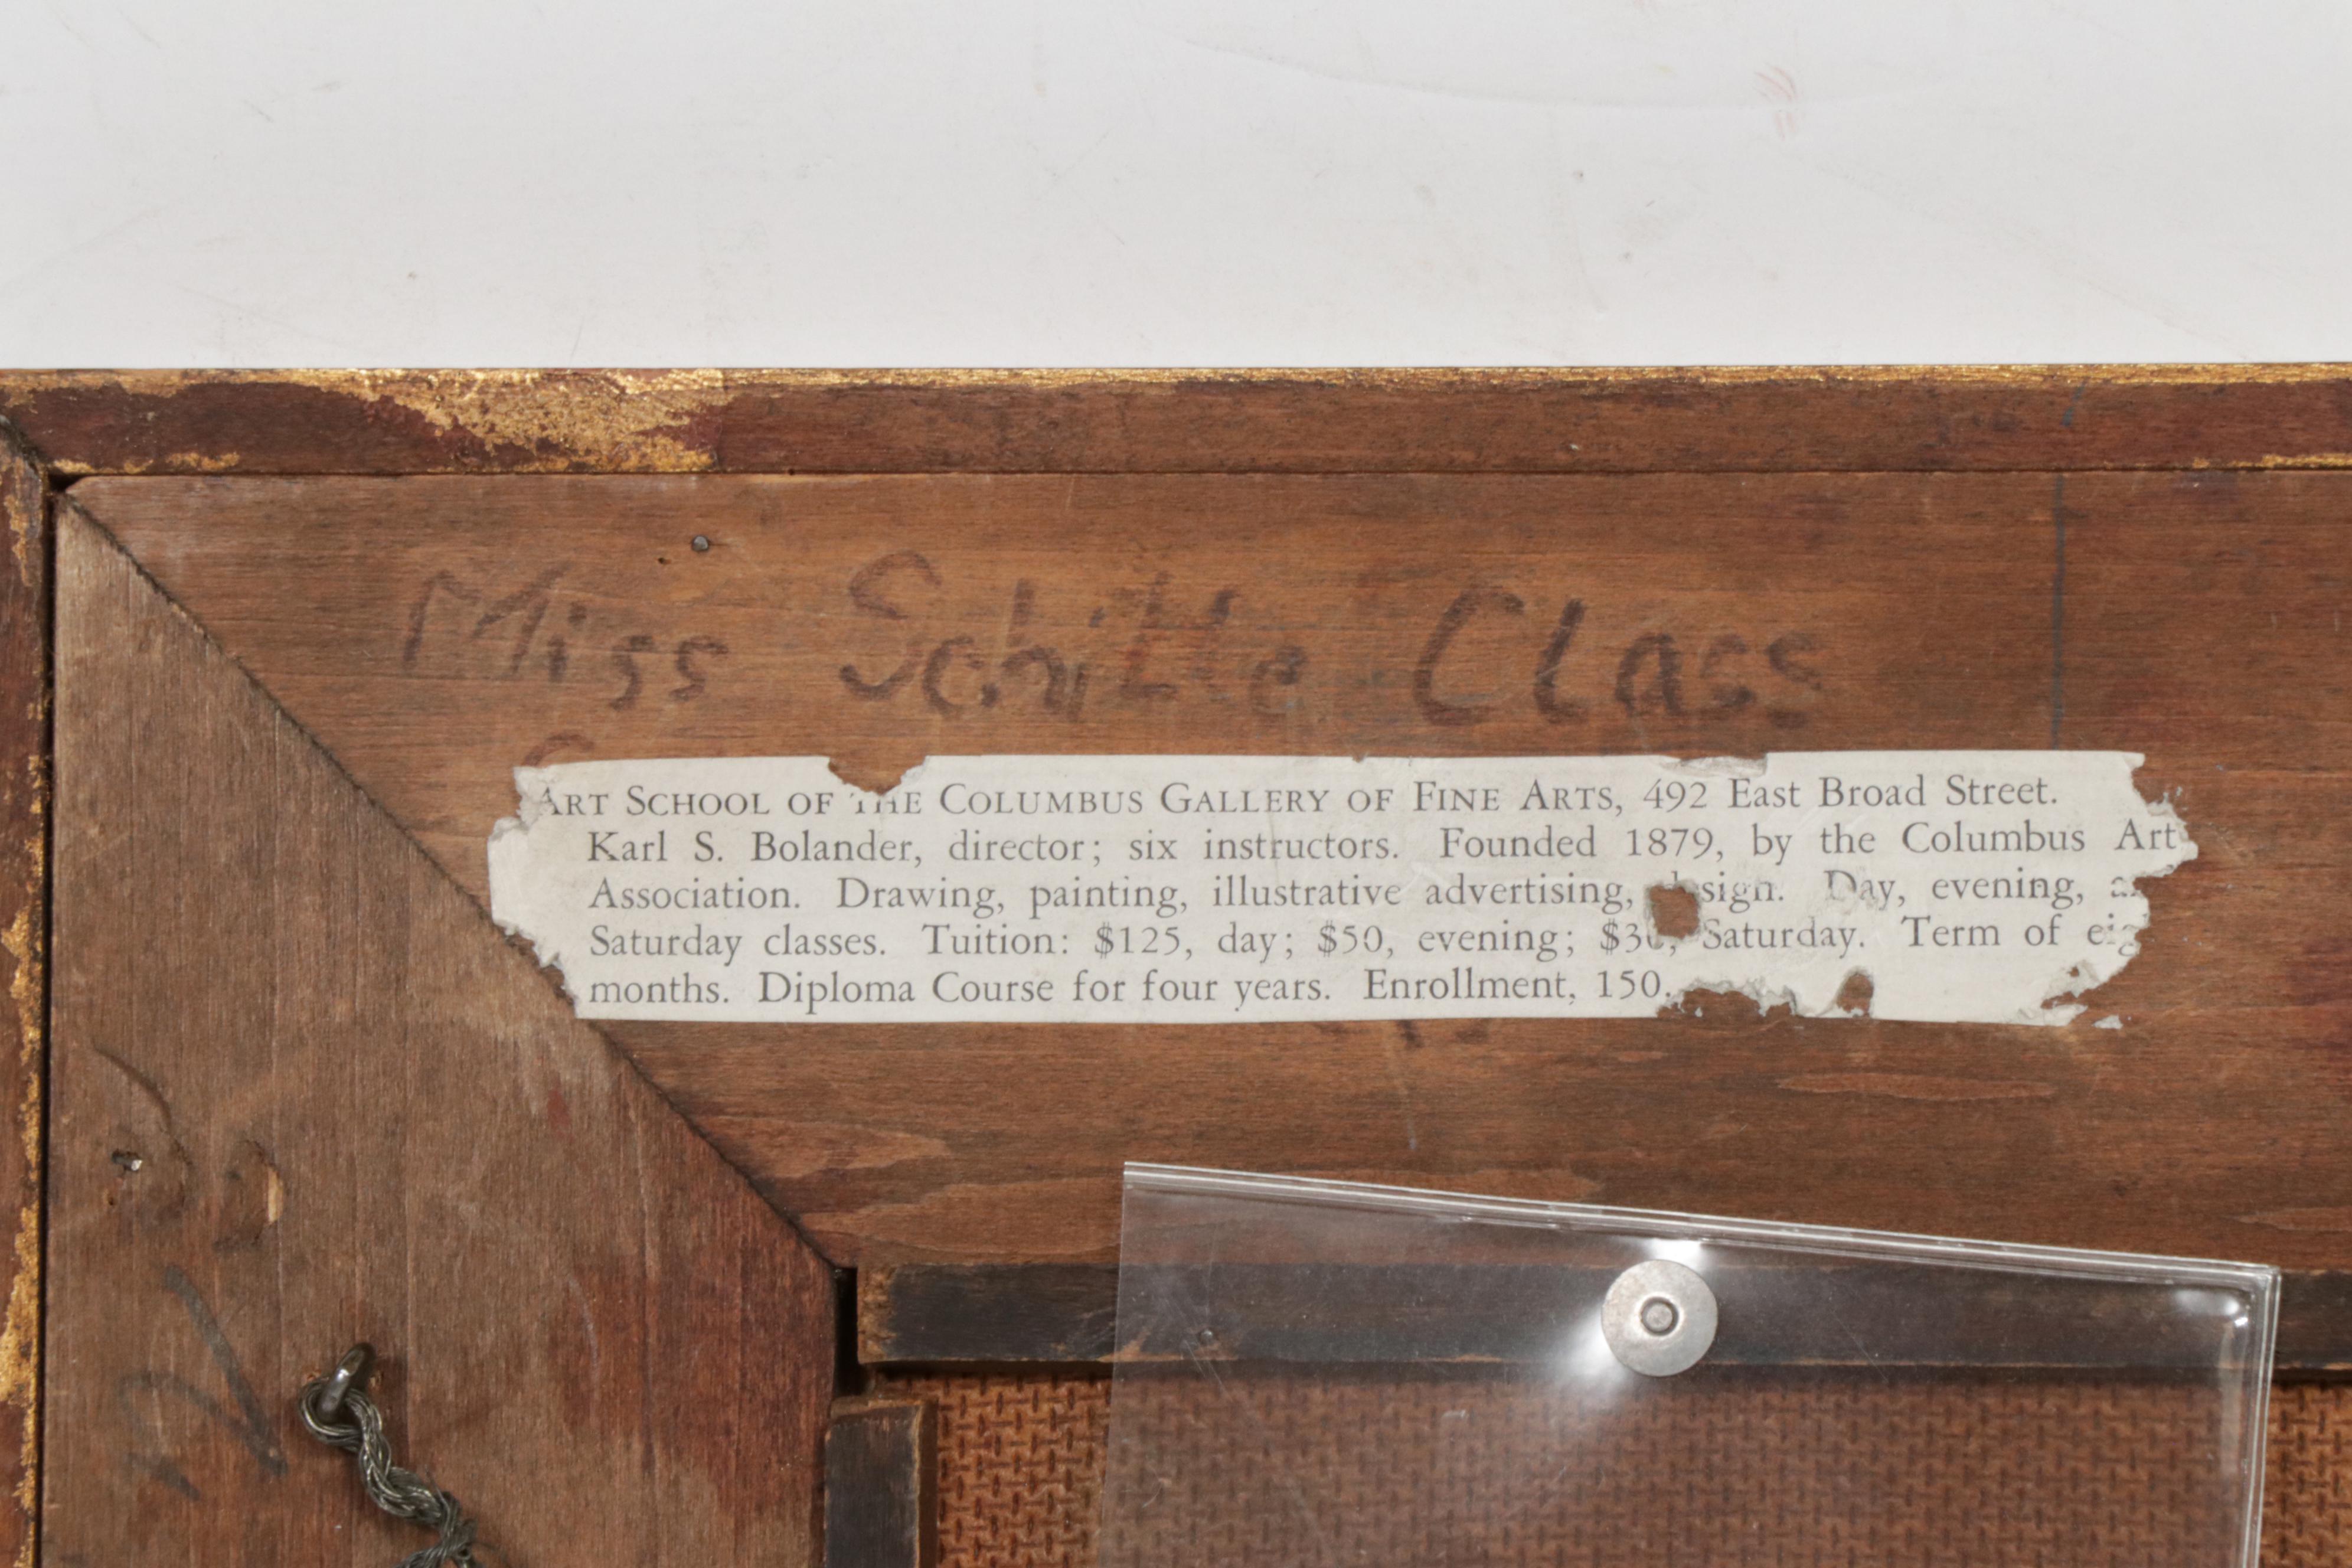 Miss Schille Class
ART SCHOOL OF THE COLUMBUS GALLERY OF FINE ARTS, 492 East Broad Street.
Karl S. Bolander, director; six instructors. Founded 1879, by the Columbus Art
Association. Drawing, painting, illustrative advertising, design. Day, evening,
Saturday classes. Tuition: $125, day; $50, evening; $30, Saturday. Term of
months. Diploma Course for four years. Enrollment, 150.